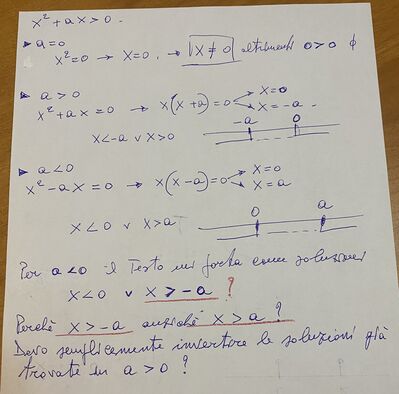 x² + ax > 0.
▸ a=0
x²=0 → x=0. → x ≠ 0 altrimenti 0>0 ∅
▸ a>0
x²+ax=0 → x(x+a)=0 x=0
x=-a
x<-a ∨ x>0
-a 0
▸ a<0
x²-ax=0 → x(x-a)=0 x=0
x=a
x<0 ∨ x>a
0 a
Per a<0 il Testo mi porta come soluzioni
x<0 ∨ x>-a ?
Perché x>-a anziché x>a ?
Devo semplicemente invertire le soluzioni già
trovate in a>0 ?